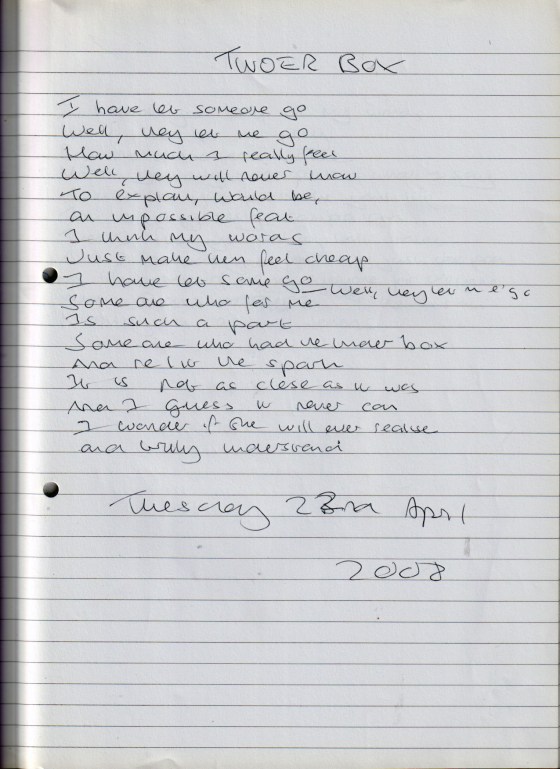 TINDER BOX
I have let someone go
Well, they let me go
How much I really feel
Well, they will never know
To explain, would be,
an impossible feat
I think my words
Just make them feel cheap
I have let some go — Well, they let me go
Someone who for me
Is such a part
Someone who had the tinder box
And re lit the spark
It is not as close as it was
And I guess it never can
I wonder if she will ever realise
and truly understand
Tuesday 23rd April
2008